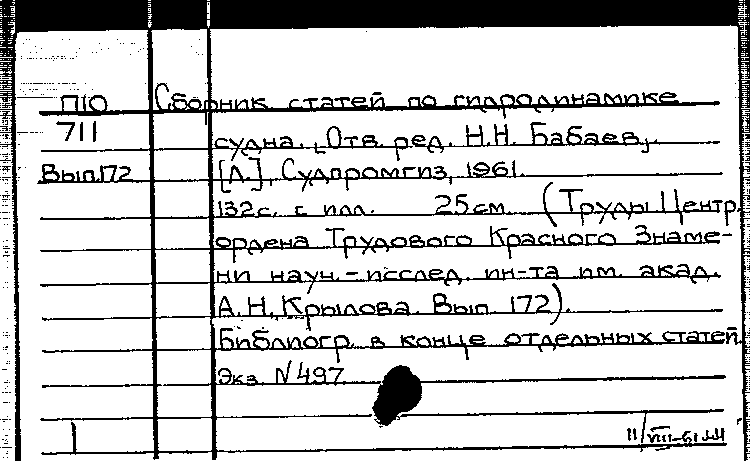 П10 Сборник статей по гидродинамике
711 судна. [Отв. ред. Н.Н. Бабаев].
Вып.172 [Л.], Судпромгиз, 1961.
132с. с илл. 25см. (Труды Центр.
ордена Трудового Красного Знаме-
ни науч.-исслед. ин-та им. акад.
А.Н. Крылова. Вып. 172).
Библиогр. в конце отдельных статей
Экз. N497
1 11/VIII-61